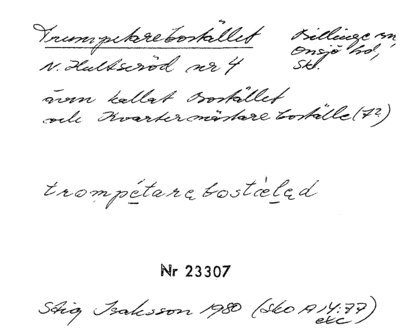 Trumpetarebostället
Billinge sn,
Onsjö hd,
Sk.
N. Hultseröd nr 4
även kallat Bostället
och Kvartermästareboställe (7?)
trompétarebostæled
Nr 23307
Stig Isaksson 1980 (Sko A 14:77)
exc